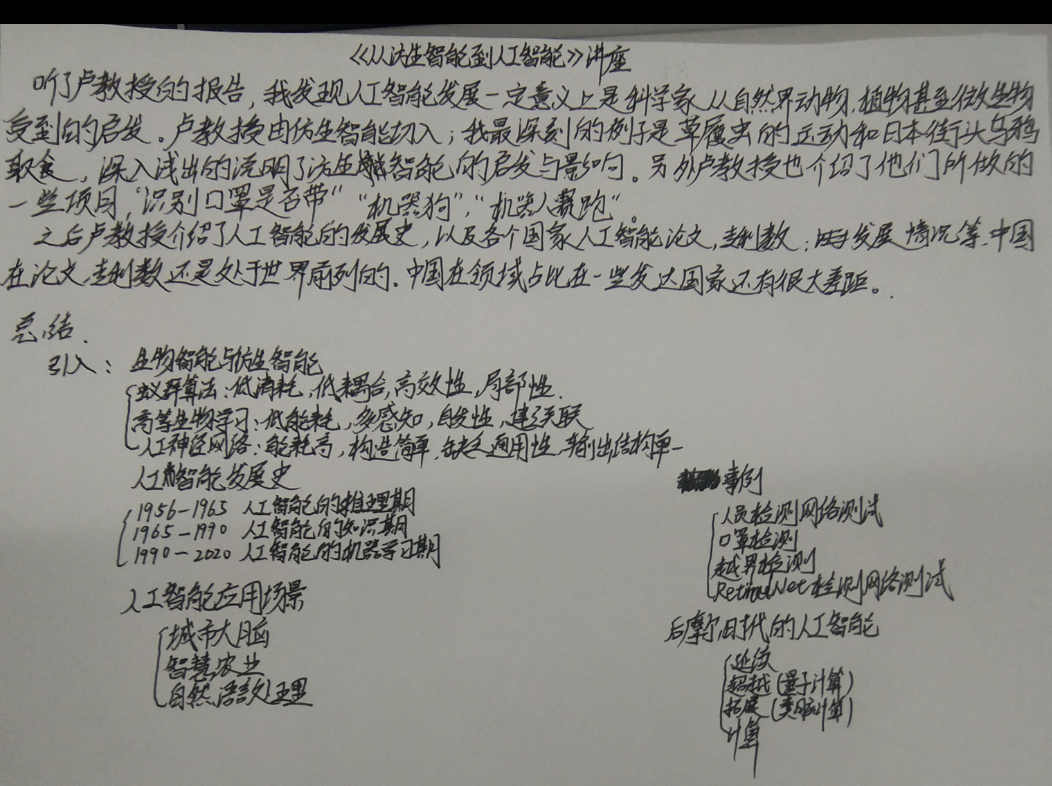 《从仿生智能到人工智能》讲座
听了卢教授的报告，我发现人工智能发展一定意义上是科学家从自然界动物、植物甚至微生物
受到的启发。卢教授由仿生智能切入；我最深刻的例子是草履虫的运动和日本街头乌鸦
取食，深入浅出的说明了仿生智能的启发与影响。另外卢教授也介绍了他们所做的
一些项目，"识别口罩是否带" "机器狗"，"机器人赛跑"。
之后卢教授介绍了人工智能的发展史，以及各个国家人工智能论文，专利数；发展情况等、中国
在论文、专利数还是处于世界前列的．中国在领域占比在一些发达国家还有很大差距。
总结．
引入：生物智能与仿生智能
蚁群算法：低消耗，低耦合，高效性，局部性．
高等生物学习：低能耗，多感知，自发性，建立关联
人工神经网络：能耗高，构造简单，缺乏通用性，输出结构单一
人工智能发展史
1956-1965 人工智能的推理期
1965-1990 人工智能的知识期
1990-2020 人工智能的机器学习期
人工智能应用场景
城市大脑
智慧农业
自然语言处理
事例
人员检测网络测试
口罩检测
越界检测
RetinaNet检测网络测试
后摩尔时代的人工智能
延续
超越（量子计算）
拓展（类脑计算）
计算